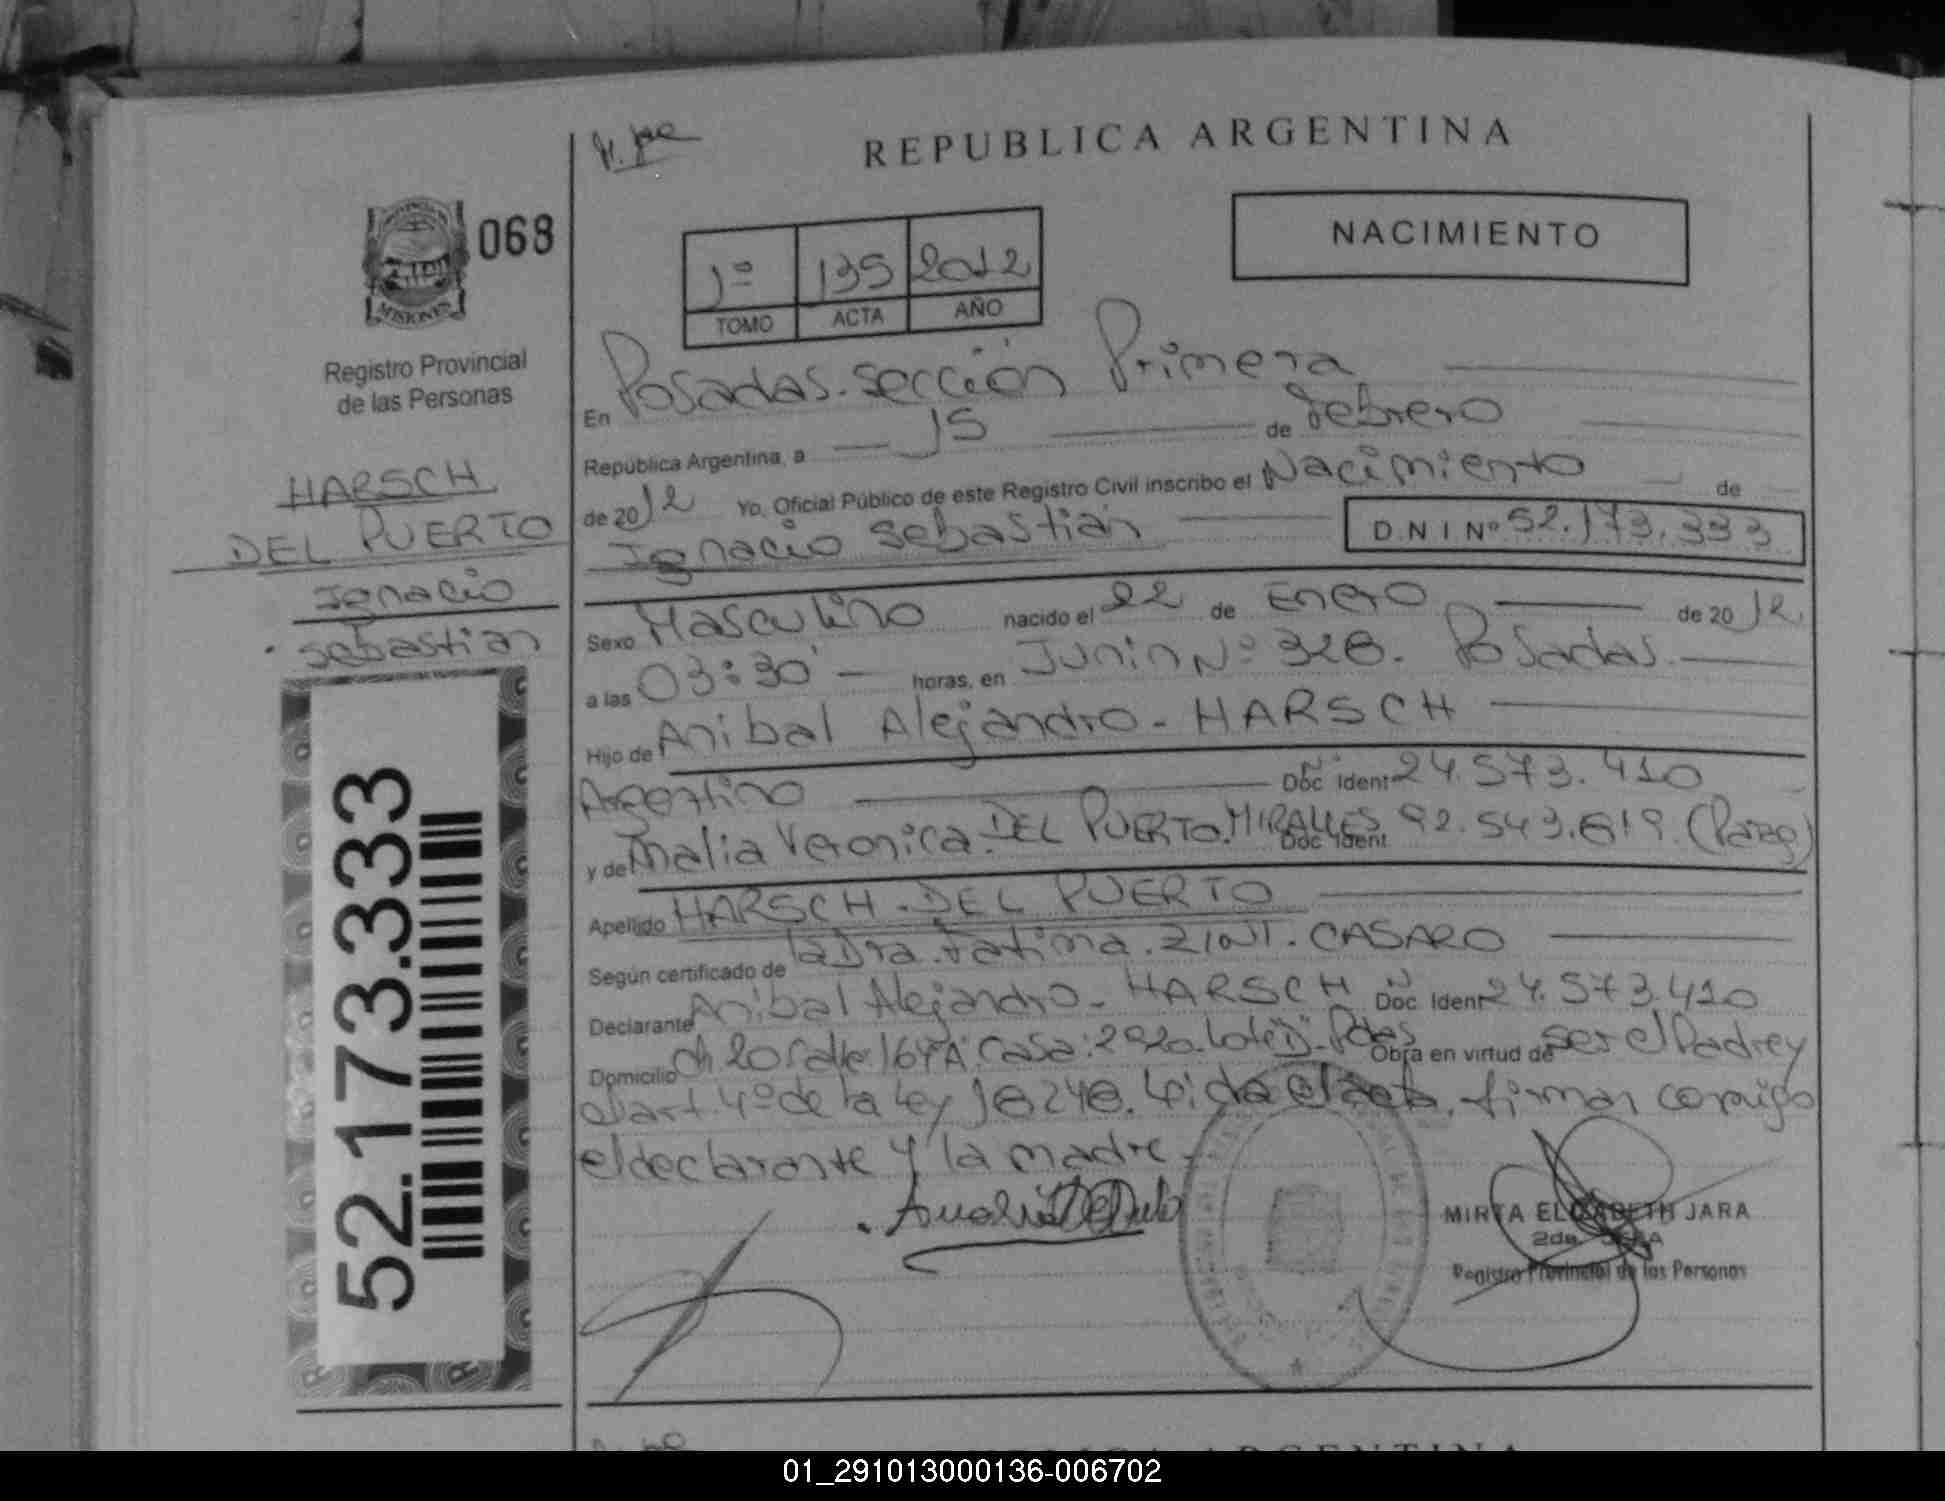 REPUBLICA ARGENTINA
NACIMIENTO
068
1º 135 2012
TOMO ACTA AÑO
MISIONES
Registro Provincial
de las Personas
HARSCH
DEL PUERTO
Ignacio
Sebastian
52.173.333
En Posadas. Sección Primera
República Argentina, a 15 de Febrero
de 2012 Yo, Oficial Público de este Registro Civil inscribo el Nacimiento de
Ignacio Sebastián D.N.I Nº 52.173.333
Sexo Masculino nacido el 22 de Enero de 2012
a las 03:30 horas, en Junin Nº 328. Posadas.
Hijo de Anibal Alejandro - HARSCH
Argentino Doc Ident 24.573.410
y de Analia Veronica. DEL PUERTO. MIRALLES Doc Ident 92.543.619. (Parag)
Apellido HARSCH - DEL PUERTO
Según certificado de la Dra. Fatima. ZINT. CASARO
Declarante Anibal Alejandro - HARSCH Doc Ident 24.573.410
Domicilio Ch 20 Calle: 164A. Casa: 2920. Lote D. Pdas Obra en virtud de ser el Padre y
el art. 4º de la Ley 18248. Leida el acta, firman conmigo
el declarante y la madre.
MIRTA ELIZABETH JARA
2da.
Registro Provincial de las Personas
ARGENTINA
01_291013000136-006702